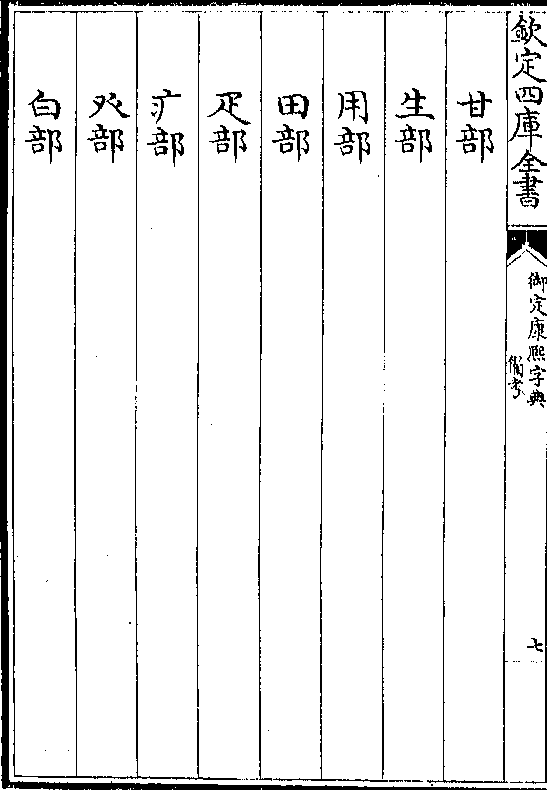 欽定四庫全書
御定康熙字典
備考
七
甘部
生部
用部
田部
疋部
疒部
癶部
白部